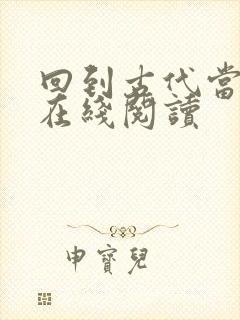 回到古代當
在綫閱讀
申寶兒